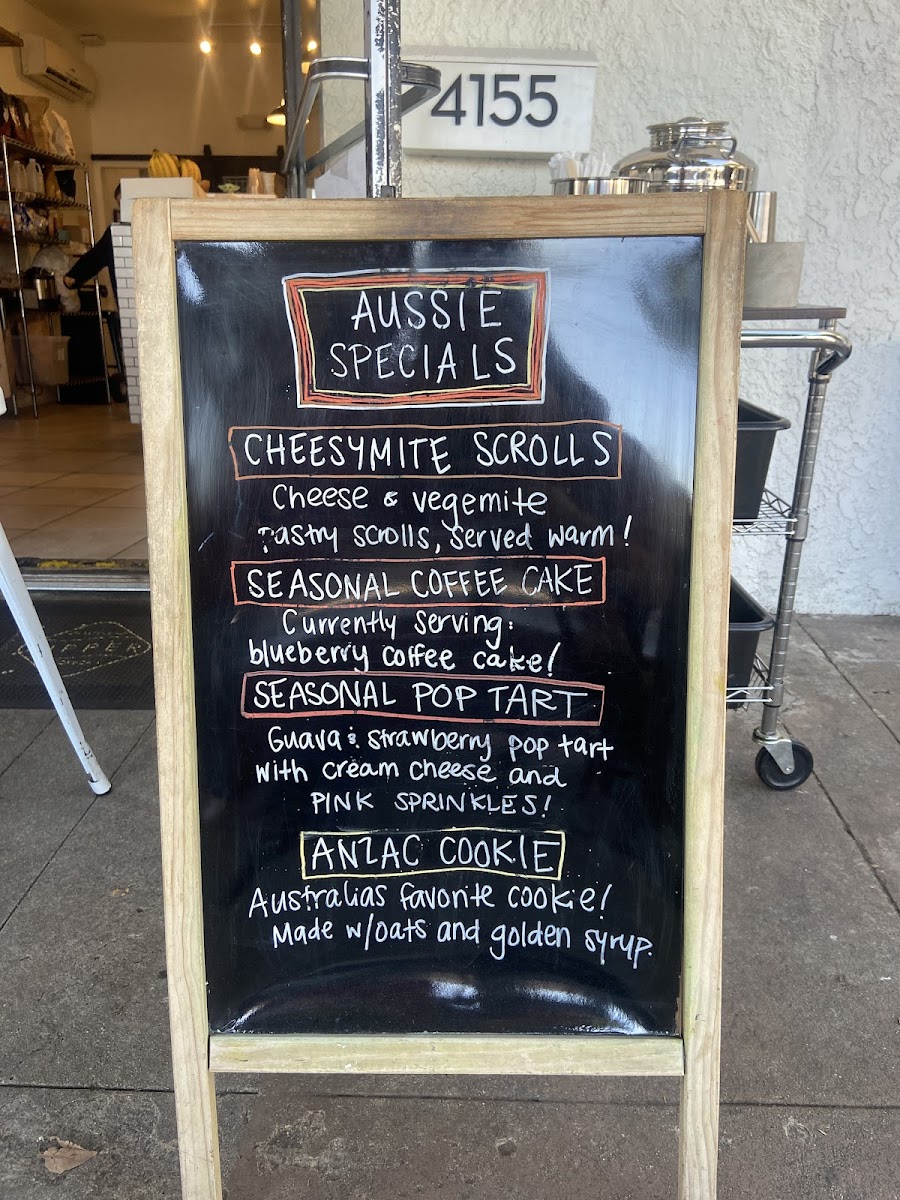 4155
AUSSIE
SPECIALS
CHEESYMITE SCROLLS
Cheese & vegemite
pastry scrolls, served warm!
SEASONAL COFFEE CAKE
Currently serving:
blueberry coffee cake!
SEASONAL POP TART
Guava & strawberry pop tart
with cream cheese and
PINK SPRINKLES!
ANZAC COOKIE
Australias favorite cookie!
Made w/oats and golden syrup.